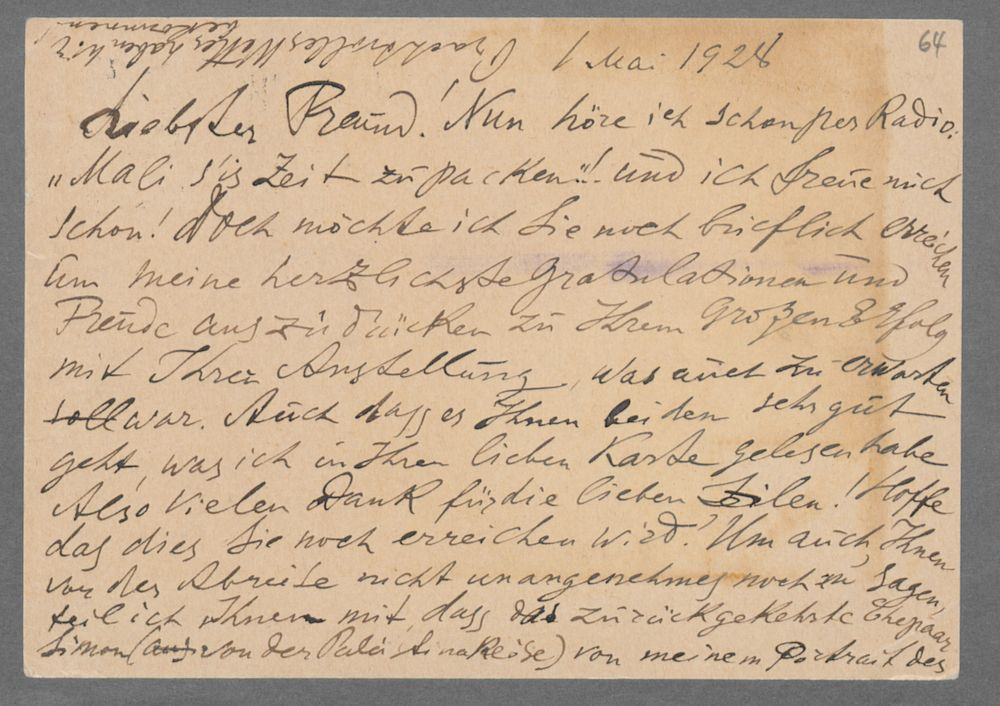 Prachtvolles Wetter haben wir
bekommen!
64
1 Mai 1928
Liebster Freund! Nun höre ich schon per Radio:
„Mali s'is Zeit zu packen"! und ich freue mich
schon! Doch möchte ich Sie noch brieflich erreichen
um meine herzlichste Gratulationen und
Freude auszudrücken zu Ihrem großen Erfolg
mit Ihrer Anstellung, was auch zu erwarten
soll war. Auch dass es Ihnen beiden sehr gut
geht, was ich in Ihren lieben Karte gelesen habe
Also vielen Dank für die lieben Zeilen! Hoffe
das dies Sie noch erreichen wird? Um auch, Ihnen
vor der Abreise nicht unangenehmes noch zu sagen,
teil ich Ihnen mit, dass das zurückgekehrte Ehepaar
Simon (aus von der Palästina Reise) von meinem Portrait des